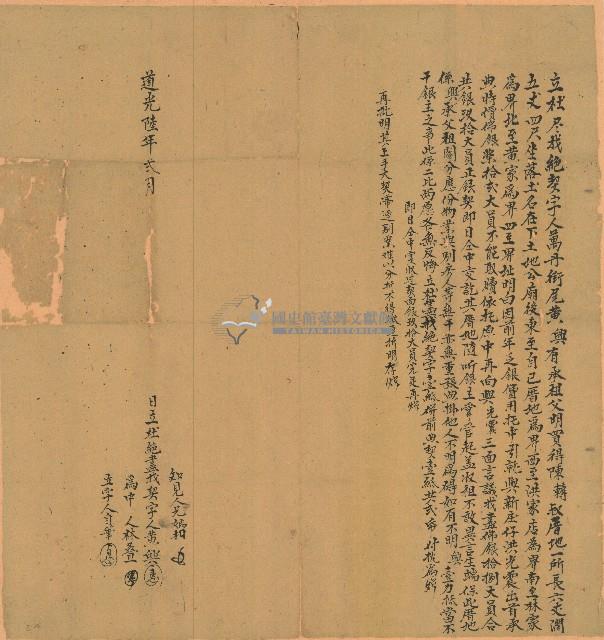 立杜尽找絕契字人萬丹街尾黃興有承祖父明買得陳轉叔厝地一所長六丈濶
五丈四尺坐落土名在下土地公廟後東至自己厝地為界西至洪家店為界南至林家
為界北至黃家為界四至界址明白因前年乏銀費用托中引就與新庄仔洪光震出首承
典時價佛銀柒拾弍大員不能取贖依托原中再向與光震三面言議找盡佛銀拾捌大員合
共銀玖拾大員正銀契即日仝中交訖其厝地隨听銀主掌管起盖收租不敢異言生端保此厝地
係興承父祖鬮分應份物業與別房人等無干亦無重張典掛他人不明為碍如有不明興壹力抵當不
干銀主之事此係二比兩愿各無反悔立杜盡找絕契字壹紙併前典契壹紙共弍帋付執為炤
即日仝中實收過契面銀玖拾大員完足再炤
再批明其上手大契帋連別業難以分拆不得繳連批明存炤
道光陸年弍月 日立杜絕盡找契字人黃興
知見人兄
為中人林
立字人自筆
國史館臺灣文獻館
TAIWAN HISTORICA